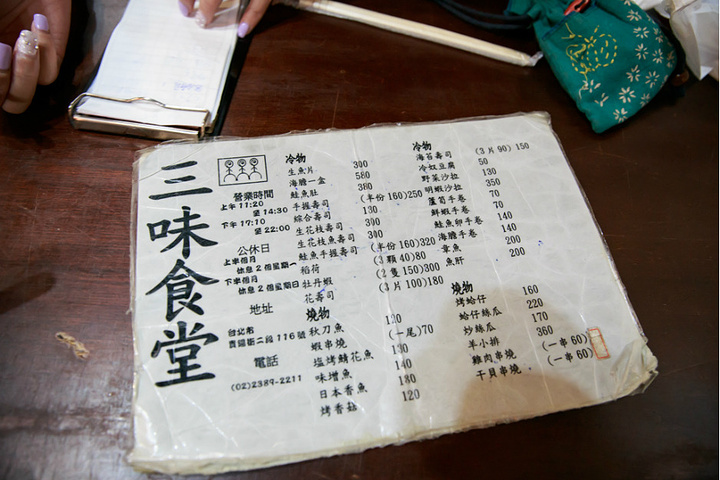 三味食堂
營業時間
上午11:20
至14:30
下午17:10
至22:00
公休日
上半個月
休息2個星期一
下半個月
休息2個星期日
地址
台北市
貴陽街二段116號
電話
(02)2389-2211
冷物
生魚片 300
海膽一盒 580
鮭魚肚 380
手握壽司 (半份160)250
綜合壽司 130
生花枝壽司 300
生花枝魚壽司 300
鮭魚手握壽司 (半份160)320
稻荷 (3顆40)80
牡丹蝦 (2隻150)300
花壽司 (3片100)180
燒物
秋刀魚
蝦串燒 (一尾)70
塩烤鯖花魚 130
味增魚 140
日本香魚 180
烤香菇 120
冷物
海苔壽司 (3片90)150
冷奴豆腐 50
野菜沙拉 130
明蝦沙拉 350
蘆筍手卷 70
鮮蝦手卷 70
鮭魚卵手卷 140
海膽手卷 140
章魚 200
魚肝 200
燒物
烤蛤仔 160
蛤仔絲瓜 220
炒絲瓜 170
羊小排 360
雞肉串燒 (一串60)
干貝串燒 (一串60)